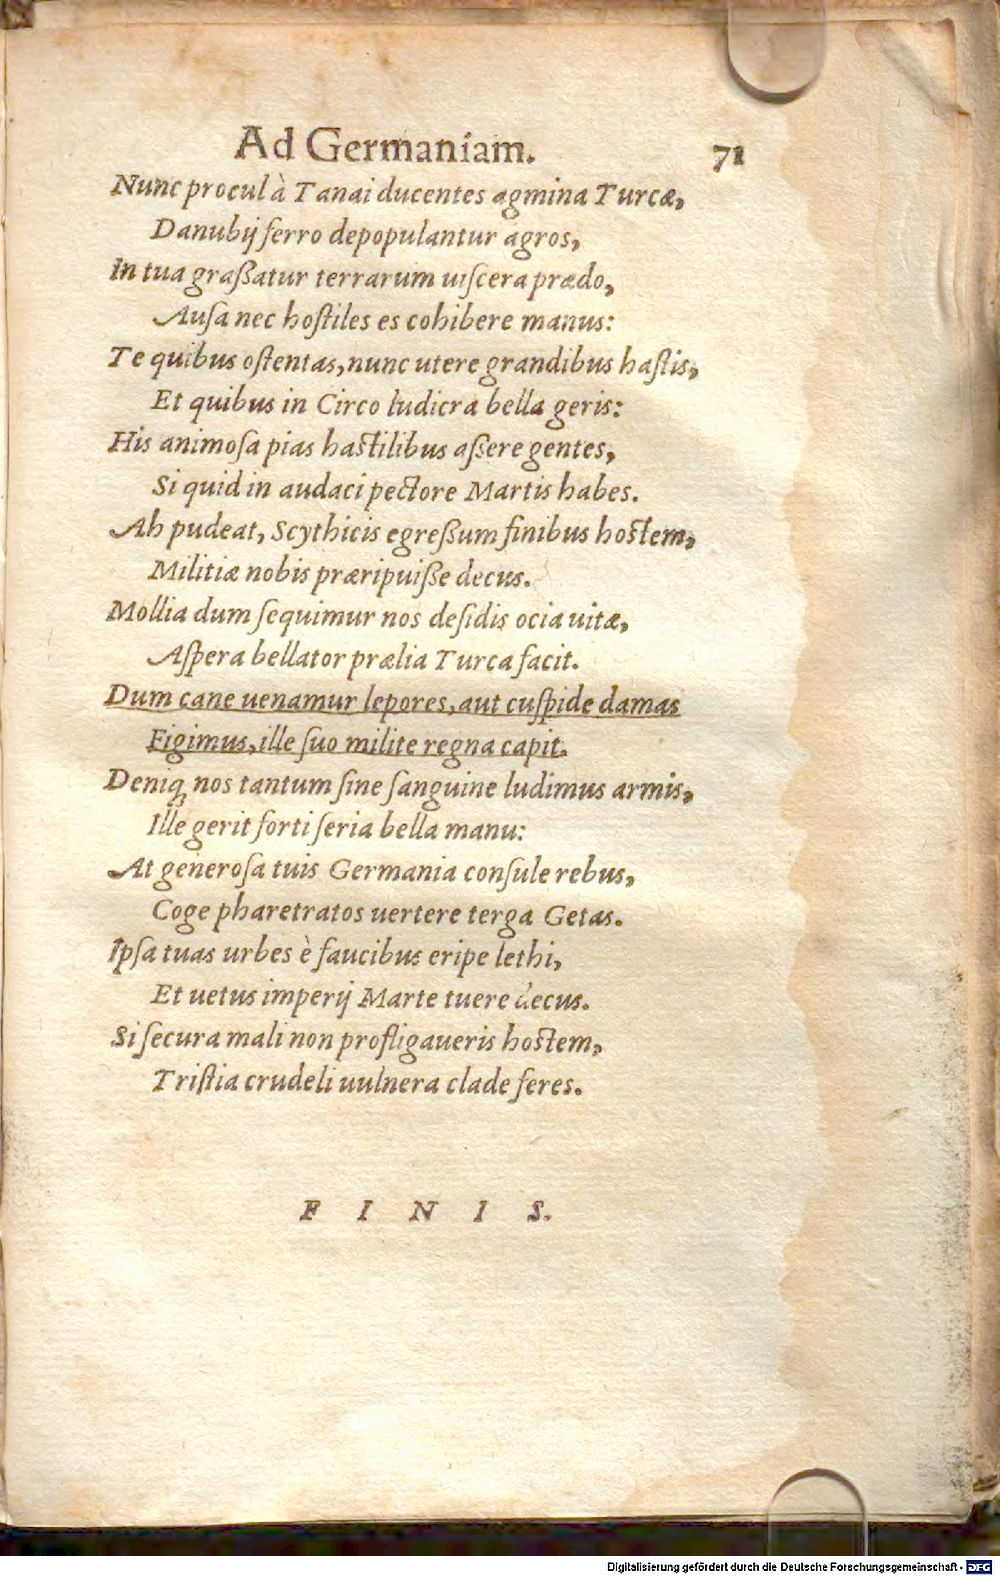 Ad Germaniam. 71
Nunc procul à Tanai ducentes agmina Turcæ,
Danubij ſerro depopulantur agros,
In tua graßatur terrarum uiſcera prædo,
Auſa nec hoſtiles es cohibere manus:
Te quibus oſtentas, nunc utere grandibus haſtis,
Et quibus in Circo ludicra bella geris:
His animoſa pias haſtilibus aſſere gentes,
Si quid in audaci pectore Martis habes.
Ah pudeat, Scythicis egreßum finibus hoſtem,
Militiæ nobis præripuiße decus.
Mollia dum ſequimur nos deſidis ocia uitæ,
Aſpera bellator prælia Turca facit.
Dum cane uenamur lepores, aut cuſpide damas
Figimus, ille ſuo milite regna capit.
Deniq; nos tantum ſine ſanguine ludimus armis,
Ille gerit forti ſeria bella manu:
At generoſa tuis Germania conſule rebus,
Coge pharetratos uertere terga Getas.
Ipſa tuas urbes è faucibus eripe lethi,
Et uetus imperij Marte tuere decus.
Si ſecura mali non profligaueris hoſtem,
Triſtia crudeli uulnera clade feres.
F I N I S.
Digitalisierung gefördert durch die Deutsche Forschungsgemeinschaft - DFG